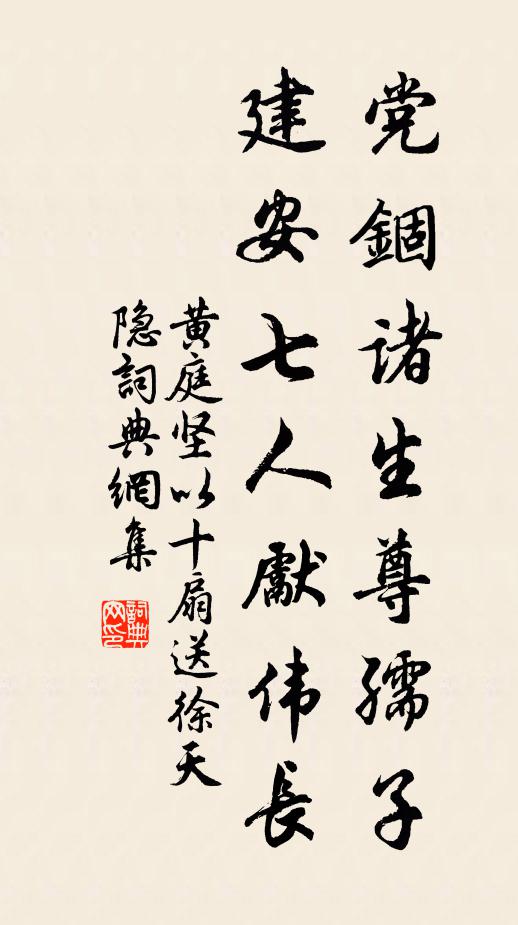 党錮诸生尊孺子
建安七人獻伟長
黄庭坚以十扇送徐天
隐詞典網集
詞典网印